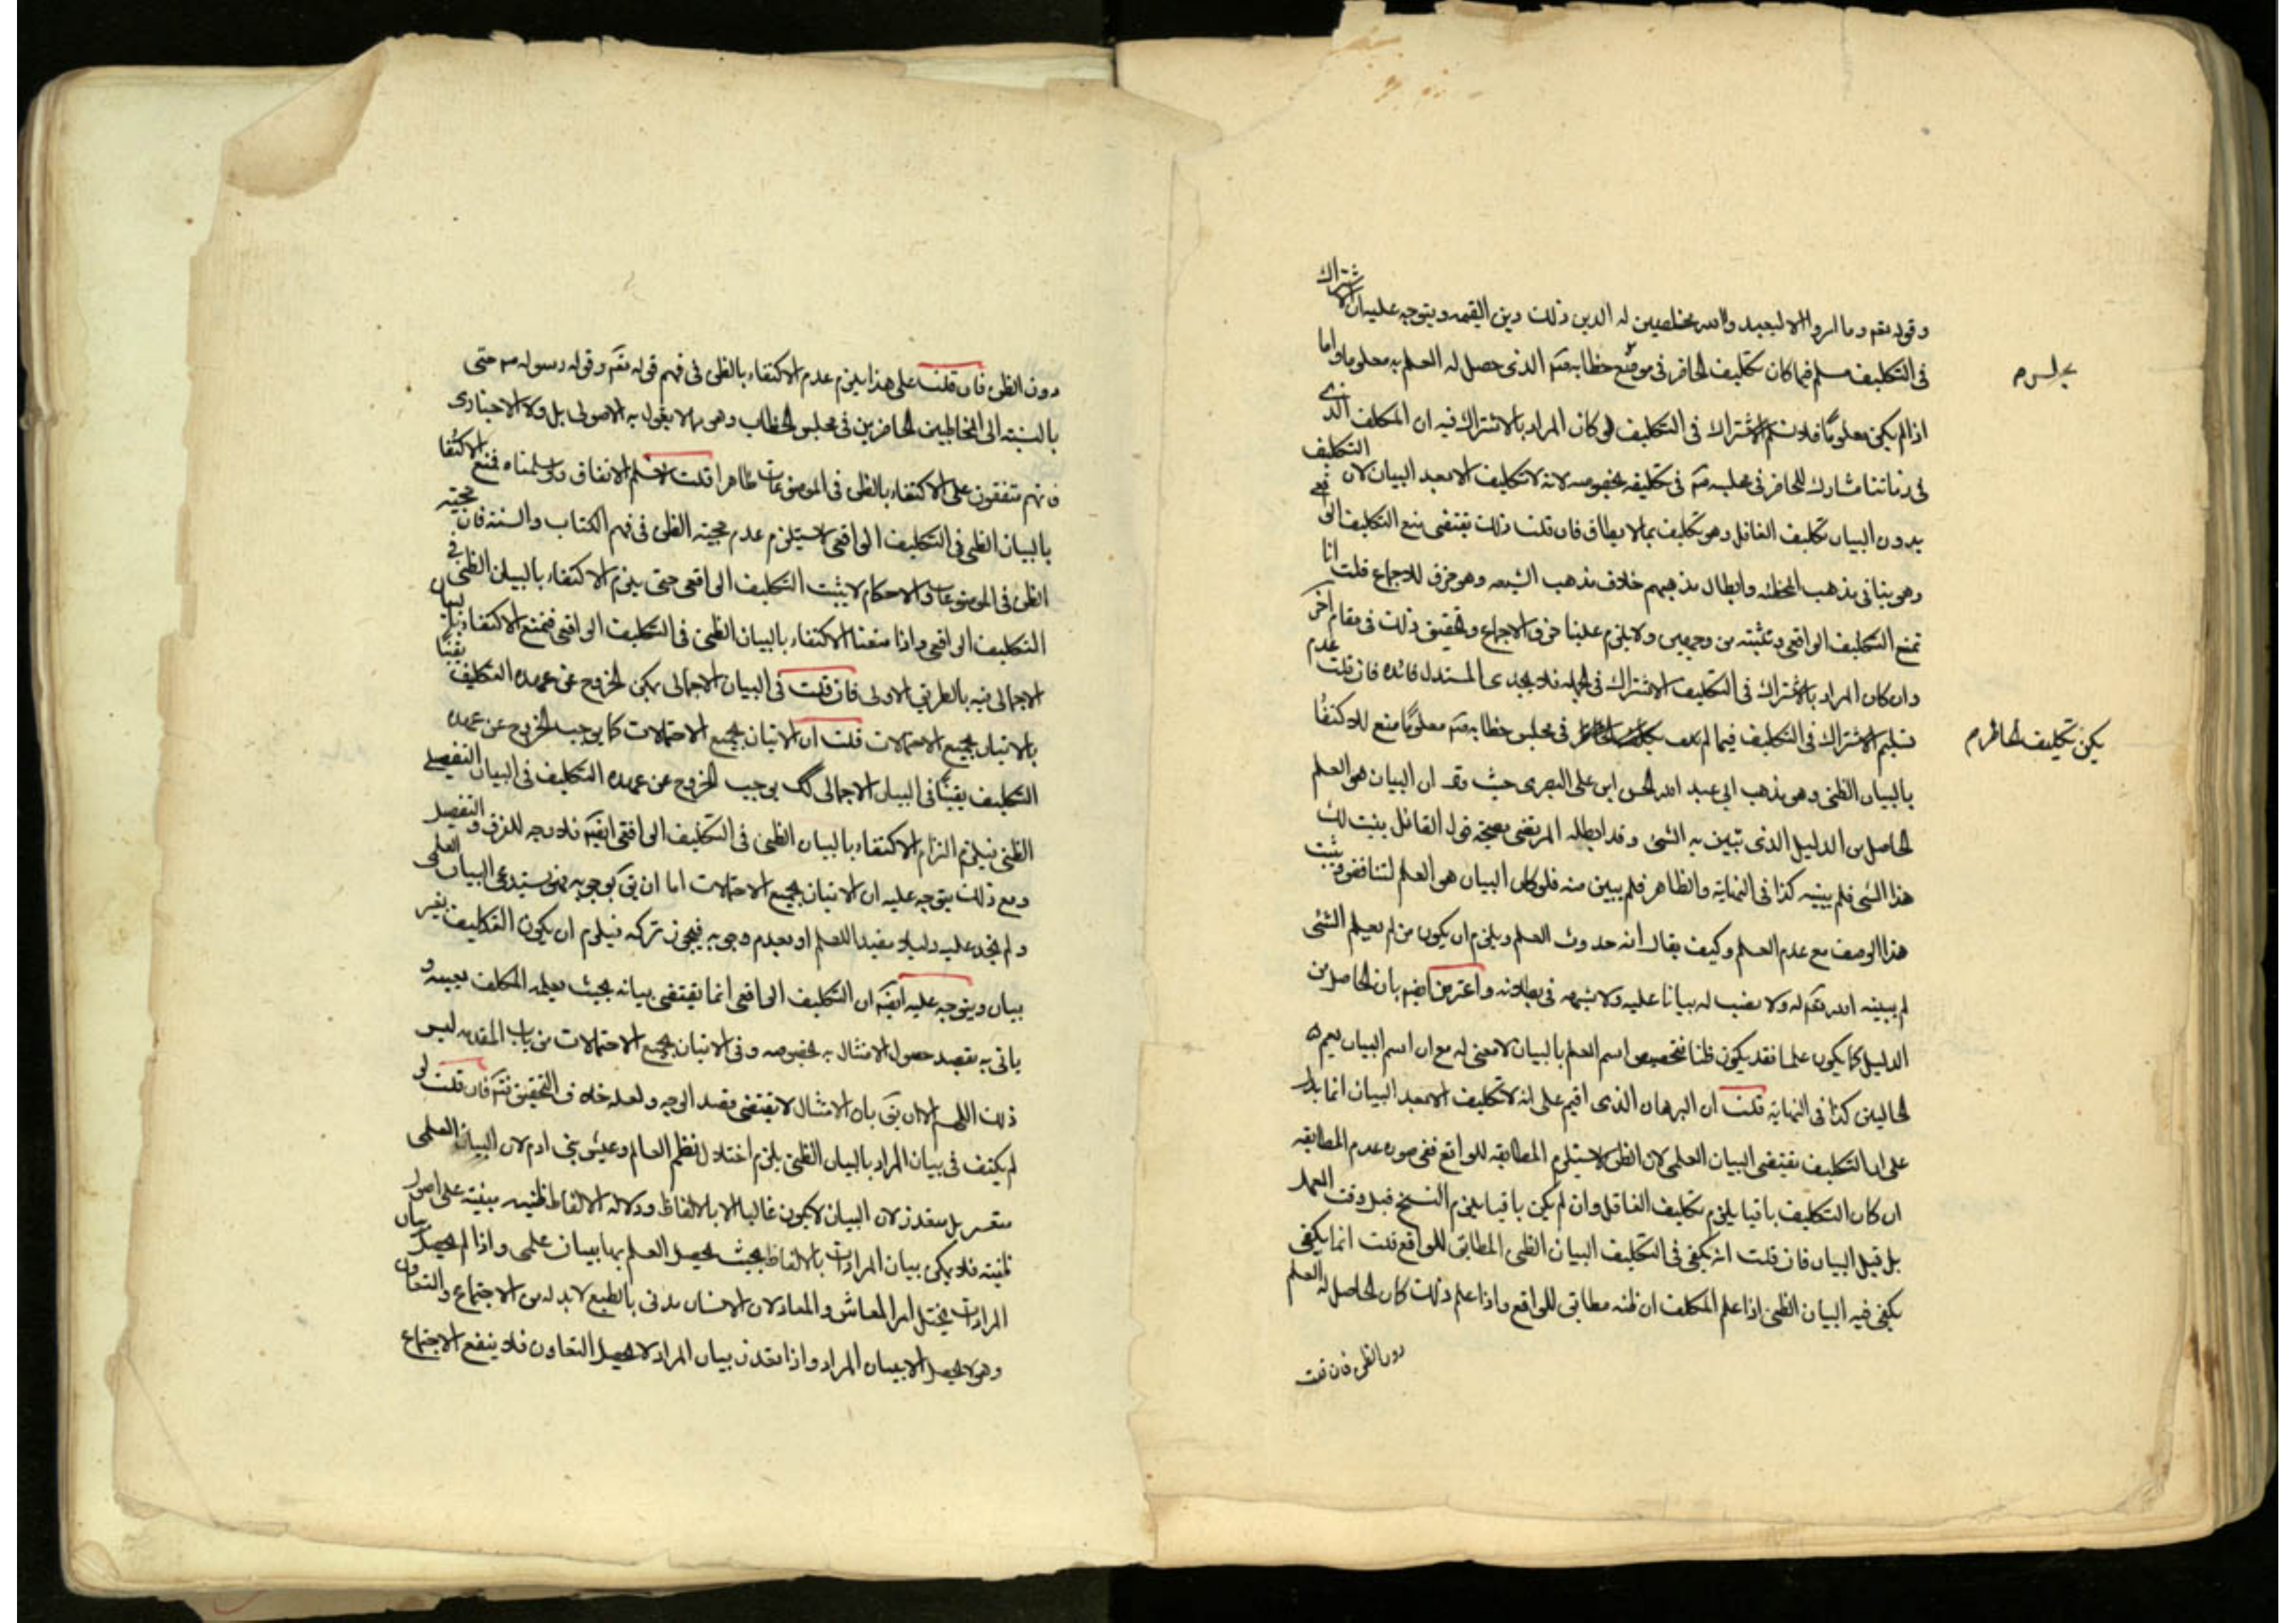 وقوله تعم وما امروا الا ليعبدوا الله مخلصين له الدين وذلك دين القيمه ويتوجه عليه ان الاشتراك
فى التكليف مسلم فيما كان تكليف الحاضر فى موقع خطابه تعم الذى حصل له العلم به معلوما واما
مجلس م
اذا لم يكن معلومًا فلا نسلم الاشتراك فى التكليف لو كان المراد بالاشتراك فيه ان المكلف الذى
فى زماننا مشارك للحاضر فى مجلسه فى تكليفه بخصوصه لانه لا تكليف الا بعد البيان لان التكليف
بدون البيان تكليف الغافل وهو تكليف بما لا يطاق فان قلت ذلك يقتضى منع التكليف الواقعى
وهو ينافى مذهب المخطئه وابطال مذهبهم خلاف مذهب الشيعه وهو خرق للاجماع قلت انا
نمنع التكليف الواقعى ونثبته من وجهين ولا يلزم علينا خرق الاجماع وتحقيق ذلك فى مقام اخر
وان كان المراد بالاشتراك فى التكليف الاشتراك فى الجمله فلا يجدى المستدل فائده فان قلت عدم
تسليم الاشتراك فى التكليف فيما لم فى مجلس خطابه تعم معلومًا منع للاكتفا
يكن تكليف الحاضر م
بالبيان الظنى وهو مذهب ابى عبد الله الحسن ابن على البصرى حيث ان البيان هو العلم
الحاصل من الدليل الذى تبين به الشئ وقد ابطله المرتضى بصحة قول القائل بينت لك
هذا الشئ فلم يتبينه كذا فى النهاية والظاهر فلم يتبين منه فلو كان البيان هو العلم لتناقض ويثبت
هذا الوصف مع عدم العلم وكيف يقال انه حدوث العلم ويلزم ان يكون من لم يعلم الشئ
لم يبينه الله تعم له ولا نصب له بيانا عليه ولا شبهه فى بطلانه واعترض ايضم بان الحاصل من
الدليل كما يكون علما فقد يكون ظنا فتخصيص اسم العلم بالبيان لا معنى له مع ان اسم البيان يعم
الحالين كذا فى النهاية قلت ان البرهان الذى اقيم على انه لا تكليف الا بعد البيان انما يدل
على ان التكليف يقتضى البيان العلمى لان الظن لا يستلزم المطابقه للواقع ففى صوره عدم المطابقه
ان كان التكليف باقيا يلزم تكليف الغافل وان لم يكن باقيا يلزم النسخ قبل وقت العمل
بل قبل البيان فان قلت انه يكفى فى التكليف البيان الظنى المطابق للواقع قلت انما يكفى
يكفى فيه البيان الظنى اذا علم المكلف ان ظنه مطابق للواقع واذا علم ذلك كان الحاصل له العلم
دون الظن فان قلت
دون الظن فان قلت على هذا يلزم عدم الاكتفاء بالظن فى فهم قوله تعم وقول رسوله حتى
بالنسبة الى المخاطبين الحاضرين فى مجلس الخطاب وهو مما لا يقول به الاصولى بل ولا الاخبارى
فانهم متفقون على الاكتفاء بالظن فى الموضوعات ظاهرا قلت لا نسلم الاتفاق ولو سلمناه فمنع الاكتفا
بالبيان الظنى فى التكليف الواقعى لا يستلزم عدم حجية الظن فى فهم الكتاب والسنة فان حجية
الظن فى الموضوعات والاحكام لا يثبت التكليف الواقعى حتى يلزم الاكتفاء بالبيان الظنى فى
التكليف الواقعى واذا منعنا الاكتفاء بالبيان الظنى فى التكليف الواقعى فنمنع الاكتفاء ببيان
الاجمالى فيه بالطريق الاولى فان قلت فى البيان الاجمالى يمكن الخروج عن عهده التكليف يقينًا
بالاتيان بجميع الاحتمالات قلت ان الاتيان بجميع الاحتمالات كما يوجب الخروج عن عهده
التكليف يقينًا فى البيان الاجمالى كك يوجب الخروج عن عهده التكليف فى البيان التفصيلى
الظنى فيلزم التزام الاكتفاء بالبيان الظنى فى التكليف الواقعى ايضم فلا وجه للفرق والتفصيل
ومع ذلك يتوجه عليه ان الاتيان بجميع الاحتمالات اما ان يق بوجوبه فهو يستدعى البيان العلمى
ولم نجد عليه دليلا مفيدا للعلم او بعدم وجوبه فيجوز تركه فيلزم ان يكون التكليف بغير
بيان ويتوجه عليه ايضم ان التكليف الواقعى انما يقتضى بيانه بحيث يعلمه المكلف بعينه و
ياتى به بقصد حصول الامتثال به بخصوصه وفى الاتيان بجميع الاحتمالات من باب المقدمه ليس
ذلك اللهم الا ان يق بان الامتثال لا يقتضى قصد الوجه ولعله خلاف التحقيق فتم فان قلت لو
لم يكتف فى بيان المراد بالبيان الظنى يلزم اختلال نظم العالم وعيش بنى ادم لان البيان العلمى
متعسر بل متعذر لان البيان لا يكون غالبا الا بالالفاظ ودلالة الالفاظ ظنيه مبنيه على اصول
ظنيه فلا يمكن بيان المرادات بالالفاظ بحيث يحصل العلم بها ببيان علمى واذا لم يحصل بيان
المرادات يختل امر المعاش والمعاد لان الانسان مدنى بالطبع لا بد له من الاجتماع والتعاون
وهو لا يحصل الا ببيان المراد واذا تعذر بيان المراد لا يحصل التعاون فلا ينفع الاجتماع